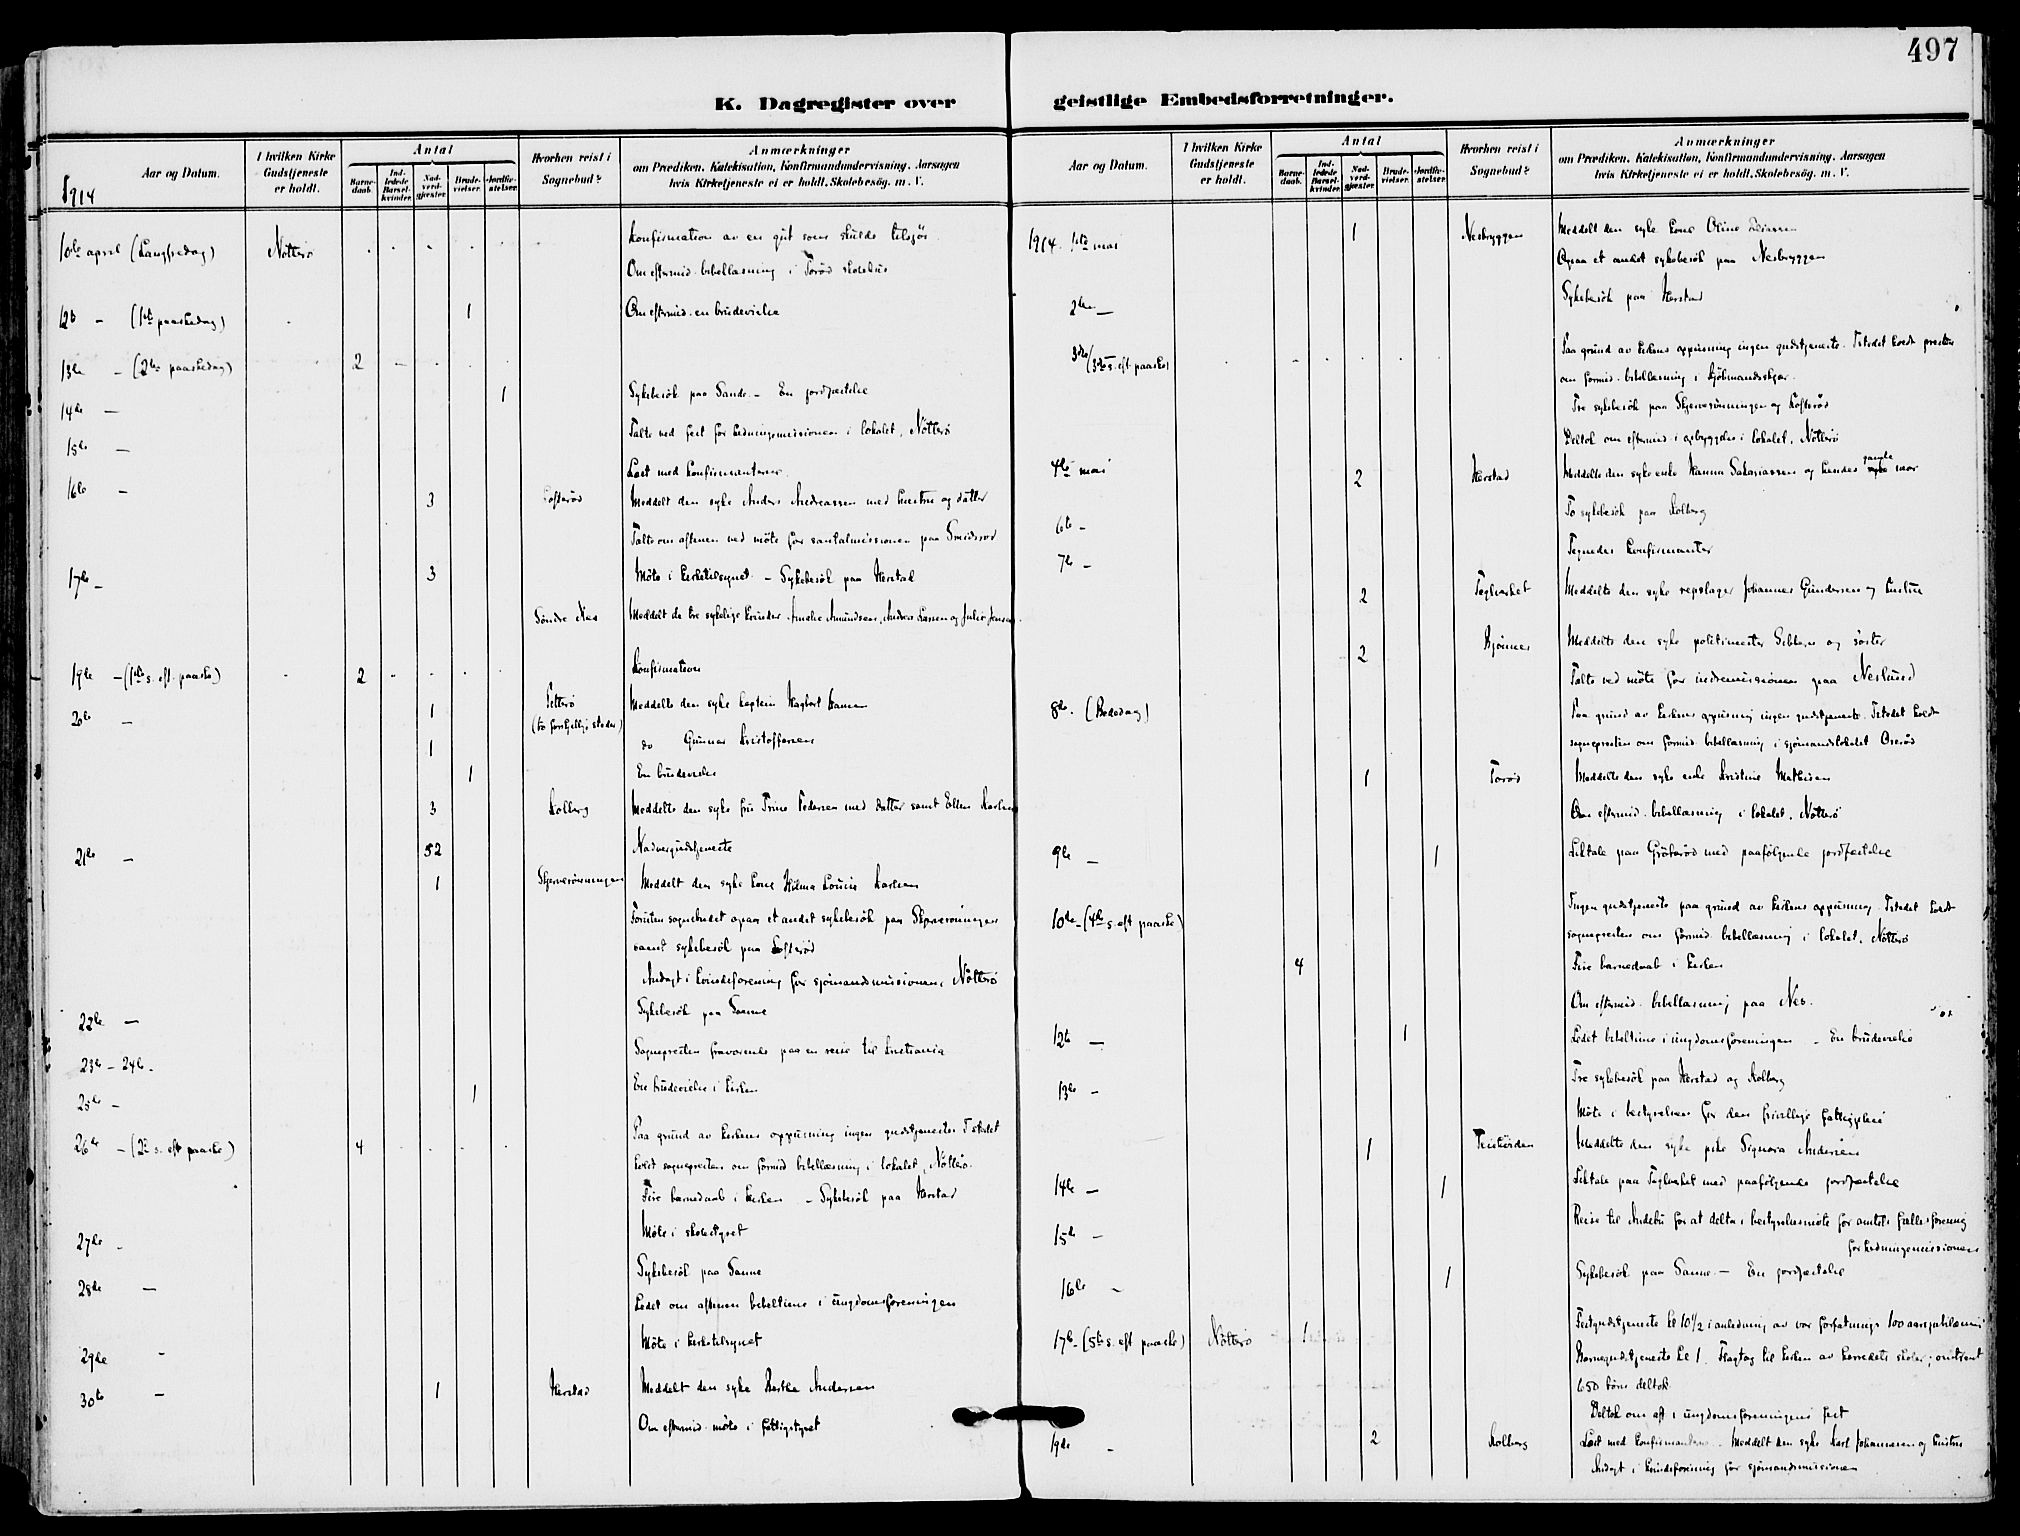 497
K. Dagregister over geistlige Embedsforretninger.
Aar og Datum.
I hvilken Kirke Gudstjeneste er holdt.
Antal
Barnedaab.
Indledede Barselkvinder.
Nadverdgjæster.
Brudevielser.
Jordfæstelser.
Hvorhen reist i Sognebud?
Anmærkninger
om Prædiken, Katekisation, Konfirmandundervisning, Aarsagen
hvis Kirketjeneste ei er holdt, Skolebesög, m. V.
1914
10de april (Langfredag) Nötterö Konfirmation av en gut som skulde tilsjös.
Om eftermid. bibellæsning i Torød skolehus
12te - (1ste paaskedag) 1 Om eftermid. en brudevielse
13de - (2den paaskedag) 2
14de — 1 Sykebesök paa Sande. - En jordfæstelse
15de — Talte ved fest for hedningemissionen i lokalet, Nötterö
16de - Læst med konfirmanterne.
3 Lofterød Meddelt den syke Anders Andreassen med hustru og datter
Talte om aftenen ved möte for santalmissionen paa Smidsrød
17de - 3 Möte i kirketilsynet. - Sykebesök paa Herstad
Söndre Nes Meddelt de tre sykelige kvinder Amalie Amundsen, Andrea Larsen og Julie Jensen.
19de - (1ste s. eft. paaske) 2 Konfirmation
20de — 1 Tetterö (to forskjellige steder) Meddelte den syke kaptein Hagbart Hansen
1 do Gunnar Kristoffersen
1 En brudevielse
3 Kolberg Meddelte den syke fru Trine Pedersen med datter samt Ellen Karlsen
21de — 52 Nadvergudstjeneste
1 Skjerverönningen Meddelt den syke kone Hilma Lovise Karlsen
Foruten sognebudet ogsaa et andet sykebesök paa Skjerverönningen
samt sykebesök paa Lofterød
Andagt i kvindeforening for sjömandsmissionen, Nötterö
22de — Sykebesök paa Sanne
23de - 24de - Sognepresten fraværende paa en reise til Kristiania
25de - 1 En brudevielse i kirken
26de - (2den s. eft. paaske) 4 Paa grund av kirkens oppusning ingen gudstjeneste. Istedet
holdt sognepresten om formid. bibellæsning i lokalet, Nötterö.
Fire barnedaab i kirken - Sykebesök paa Herstad
27de - Möte i skolestyret
28de — Sykebesök paa Sanne
Ledet om aftenen bibeltime i ungdomsforeningen
29de - Möte i kirketilsynet
30te - 1 Herstad Meddelt den syke Berthe Andersen
Om eftermid. möte i fattigstyret
Aar og Datum.
I hvilken Kirke Gudstjeneste er holdt.
Antal
Barnedaab.
Indledede Barselkvinder.
Nadverdgjæster.
Brudevielser.
Jordfæstelser.
Hvorhen reist i Sognebud?
Anmærkninger
om Prædiken, Katekisation, Konfirmandundervisning, Aarsagen
hvis Kirketjeneste ei er holdt, Skolebesög, m. V.
1914. 1ste mai 1 Nesbryggen Meddelt den syke kone Oline
Ogsaa et andet sykebesök paa Nesbryggen
2den — Sykebesök paa Herstad
3die (3die s. eft. paaske) Paa grund av kirkens oppusning ingen gudstjeneste. Istedet holdt presten
om formid. bibellæsning i Kjöbmandskjær.
Tre sykebesök paa Skjerverönningen og Lofterød
Deltok om eftermid. i opbyggelse i lokalet, Nötterö
4de mai 2 Herstad Meddelte den syke enke Hanna Sakariassen og hendes gamle mor
6te - To sykebesök paa Kolberg
7de - Tegnedes konfirmanter
2 Teglverket Meddelte den syke repslager Johannes Gundersen og hustru
2 Bjönnes Meddelte den syke politimester og söster
Talte ved möte for indremissionen paa Neslund
8de. (Bededag) Paa grund av kirkens oppusning ingen gudstjeneste. Istedet holdt
sognepresten om formid. bibellæsning i sjömandslokalet Oserød
1 Torød Meddelte den syke enke Kristine Mathisen
Om eftermid. bibellæsning i lokalet, Nötterö
9de — 1 Liktale paa Gröterød med paafölgende jordfæstelse
10de - (4de s. eft. paaske) Ingen gudstjeneste paa grund av kirkens oppusning. Istedet holdt
sognepresten om formid. bibellæsning i lokalet, Nötterö
4 Fire barnedaab i kirken
Om eftermid. bibellæsning paa Nes.
12te — 1 Ledet bibeltime i ungdomsforeningen - En brudevielse
13de - Tre sykebesök paa Herstad og Kolberg
Möte i bestyrelsen for den frivillige fattigpleie
1 Meddelte den syke pike Signora Andersen
14de — 1 Liktale paa Teglverket med paafölgende jordfæstelse
15de - Reise til Andebu for at delta i bestyrelsesmöte for amtets fællesforening
for hedningemissionen
16de - 1 Sykebesök paa Sanne. — En jordfæstelse
17de - (5te s. eft. paaske) Nötterö 1 Festgudstjeneste kl 10½ i anledning av vor forfatnings 100 aarsjubilæum
Barnegudstjeneste kl 1. Flagtog til kirken av herredets skoler; omtrent
650 börn deltok
Deltok om eft. i ungdomsforeningens fest
19de - 2 Kolberg Læst med konfirmanterne. Meddelt den syke Karl Johannesen og hustru
Andagt i kvindeforening for sjömandsmissionen